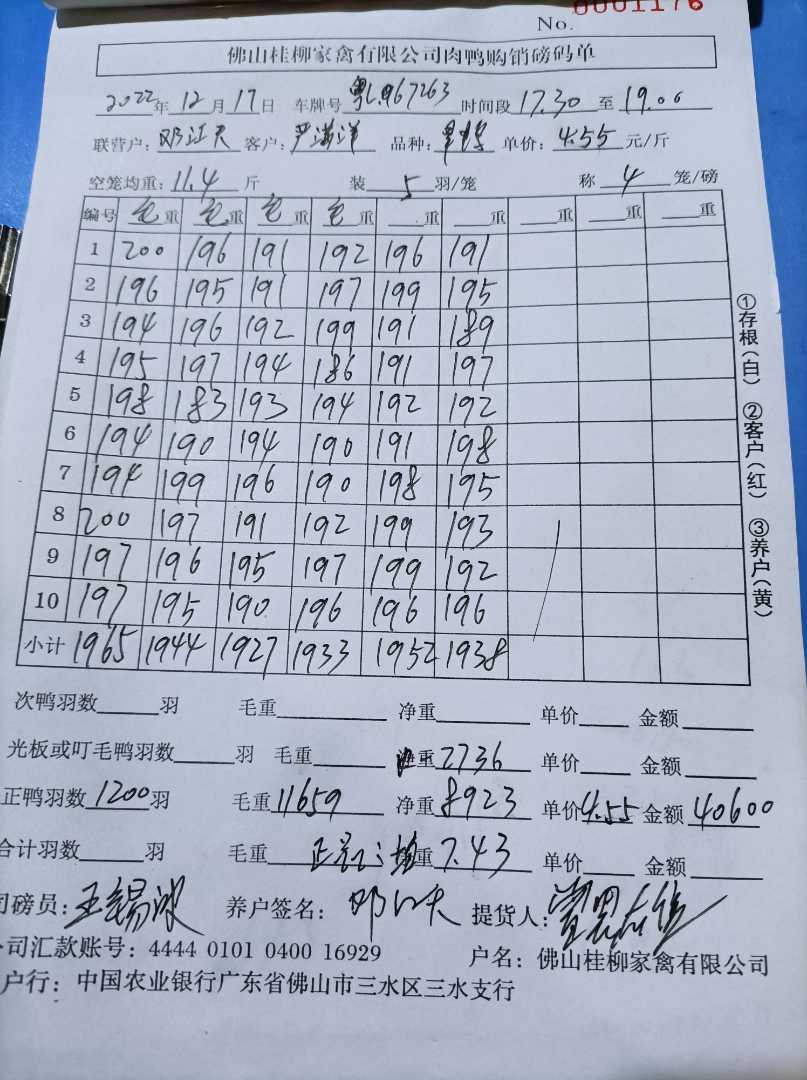 No. 0001176
佛山桂柳家禽有限公司肉鸭购销磅码单
2022年12月17日 车牌号 粤L967263 时间段 17.30 至 19.00
联营户: 邓江天 客户: 严满洋 品种: 单价: 4.55 元/斤
空笼均重: 11.4 斤 装 5 羽/笼 称 4 笼/磅
编号 毛重 毛重 毛重 毛重 重 重 重 重 重
1 200 196 191 192 196 191
2 196 195 191 197 199 195
3 194 196 192 199 191 189
4 195 197 194 186 191 197
5 198 183 193 194 192 192
6 194 190 194 190 191 198
7 194 199 196 190 198 195
8 200 197 191 192 199 193
9 197 196 195 197 199 192
10 197 195 190 196 196 196
小计 1965 1944 1927 1933 1952 1938
次鸭羽数 羽 毛重 净重 单价 金额
光板或叮毛鸭羽数 羽 毛重 净重 2736 单价 金额
正鸭羽数 1200 羽 毛重 11659 净重 8923 单价 4.55 金额 40600
合计羽数 羽 毛重 净重 7.43 单价 金额
司磅员: 王锡波 养户签名: 邓江天 提货人:
公司汇款账号: 4444 0101 0400 16929 户名: 佛山桂柳家禽有限公司
户行: 中国农业银行广东省佛山市三水区三水支行
①存根(白) ②客户(红) ③养户(黄)